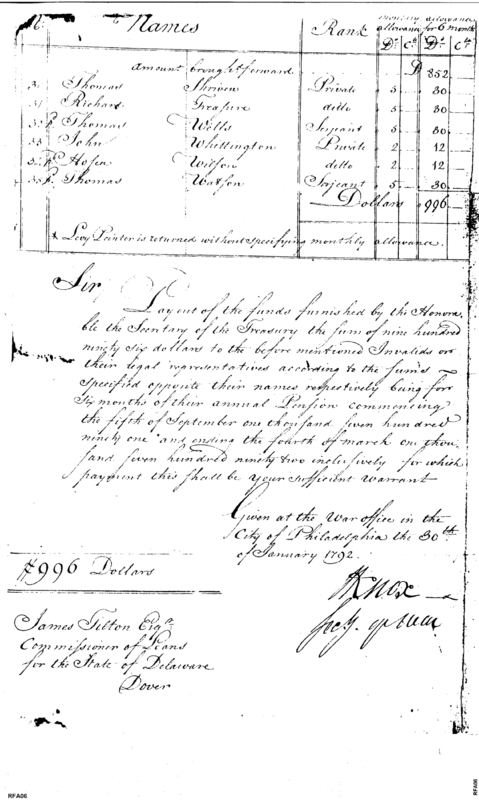 Names Rank Monthly allowance allowance for 6 month
Ds Cts Ds Cts
Amount brought forward $ 852
Thomas Shriven Private 5 30
Richard Treasure ditto 5 30
Thomas Wells Serjeant 5 30
John Whittington Private 2 12
Hosea Wilson ditto 2 12
Thomas Watson Serjeant 5 30
Dollars 996
* Levy Painter is returned without specifying monthly allowance.
Sir,
Pay out of the funds furnished by the Honora
ble the Secretary of the Treasury the sum of nine hundred
ninety six dollars to the before mentioned Invalids or
their legal representatives according to the sums
specified opposite their names respectively being for
six months of their annual Pension commencing
the fifth of September one thousand seven hundred
ninety one and ending the fourth of march one thou
sand seven hundred ninety two inclusively for which
payment this shall be your sufficient warrant
Given at the War office in the
City of Philadelphia the 30th
of January 1792.
$996 Dollars
HKnox
Secy of War
James Tilton Esqr.
Commissioner of Loans
for the State of Delaware
Dover
RFA06
RFA06